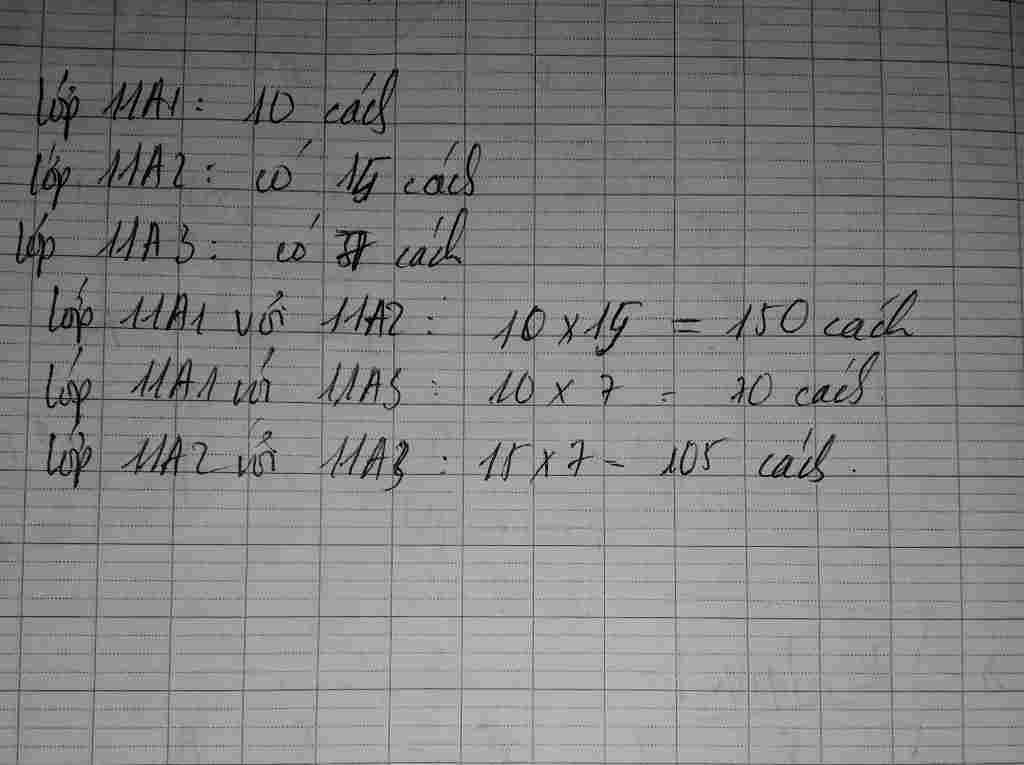 lớp 11A1: 10 cách
lớp 11A2: có 15 cách
lớp 11A3: có 7 cách
lớp 11A1 với 11A2: 10 x 15 = 150 cách
lớp 11A1 với 11A3: 10 x 7 = 70 cách.
lớp 11A2 với 11A3: 15 x 7 = 105 cách.